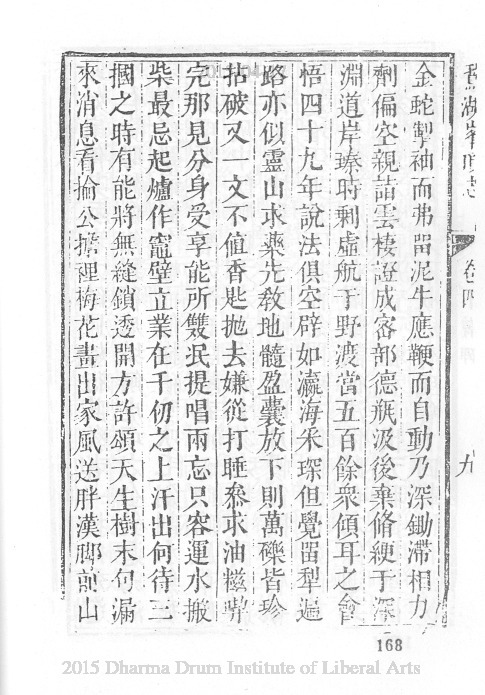 金蛇掣袖而弗留泥牛應鞭而自動乃深鋤滯相力
劑偏空親詣雲棲證成密部德缾汲後棄脩綆于深
淵道岸臻時剩虛航于野渡當五百餘衆傾耳之會
悟四十九年說法俱空辟如瀛海采琛但覺留犁遍
路亦似靈山求藥先教地髓盈囊放下則萬礫皆珍
拈破又一文不値香匙抛去嫌從打睡參求油糍
完那見分身受享能所雙泯提唱兩忘只容運水搬
柴最忌起爐作竈壁立業在千仞之上汗出何待三
摑之時有能將無縫鎖透開方許頌天生樹末句漏
來消息看揄公擔裡梅花畫出家風送胖漢脚前山
卷四
九
168
2015 Dharma Drum Institute of Liberal Arts